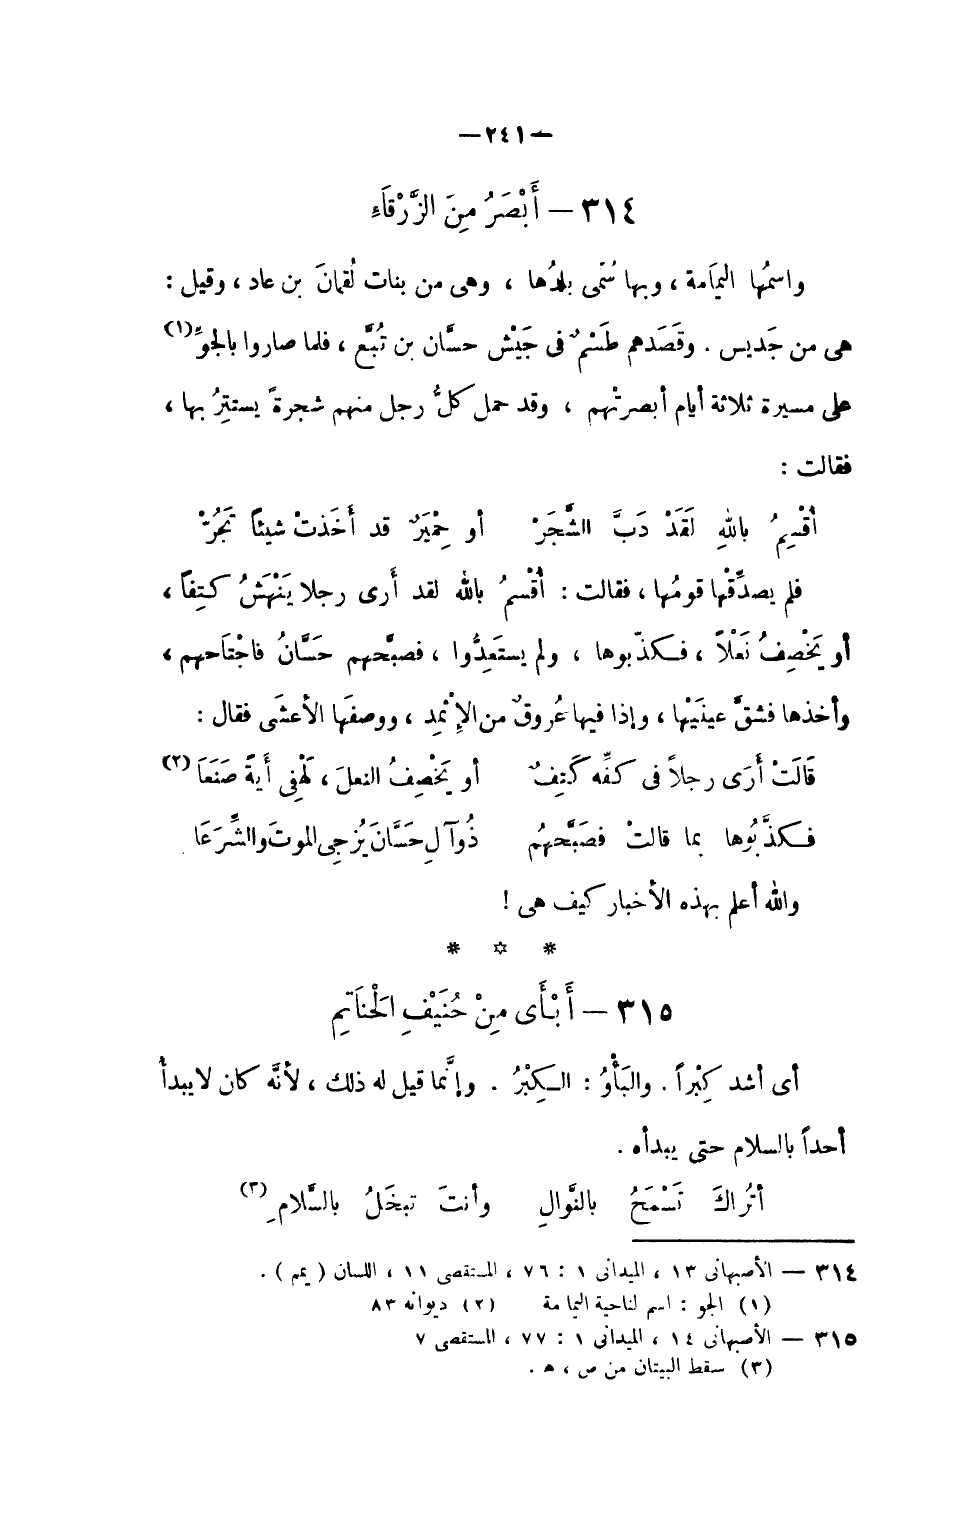 — ٢٤١ —
٣١٤ — أَبْصَرُ مِنَ الزَّرْقَاءِ
واسمُها اليمَامة ، وبها سُمّى بلدُها ، وهى من بنات لُقمانَ بن عاد ، وقيل :
هى من جَديس . وقَصَدهم طَسْمٌ فى جَيْش حسَّان بن تُبَّع ، فلما صاروا بالجوِّ (١)
على مسيرة ثلاثة أيام أبصرتْهم ، وقد حمل كلُّ رجل منهم شجرةً يستتِرُ بها ،
فقالت :
أُقْسِمُ بِاللهِ لَقَدْ دَبَّ الشَّجَرْ أو حِمْيَرٌ قد أَخَذتْ شيئًا تَجُرّْ
فلم يصدِّقْها قومُها ، فقالت : أُقْسمُ بالله لقد أَرى رجلا يَنْهَشُ كتِفاً ،
أو يَخْصِفُ نَعْلاً ، فكذّبوها ، ولم يستَعِدُّوا ، فصبَّحهم حَسَّانُ فاجْتاَحهم ،
وأخذها فشقَّ عينَيْها ، وإذا فيها عُروقٌ من الإثمد ، ووصفَها الأعشَى فقال :
قَالَتْ أَرَى رجلاً فى كفِّه كَتِفٌ أو يَخْصِفُ النعلَ ، لَهْفِى أَيةً صَنَعَا (٢)
فكذَّبُوها بما قالتْ فصَبَّحهُم ذُو آلِ حَسَّانَ يُزجِى الموتَ والشِّرَعَا
والله أعلم بهذه الأخبار كيف هى !
* * *
٣١٥ — أَبْأَى مِنْ حُنَيْفِ الْحْنَاتِمِ
أى أشد كِبْراً . والبَأْوُ : الكِبْرُ . وإنَّما قيل له ذلك ، لأنَّه كان لا يبدأُ
أحداً بالسلام حتى يبدأه .
أتُراكَ تَسْمَحُ بالنَّوالِ وأنتَ تبخَلُ بالسَّلامِ (٣)
٣١٤ — الأصبهانى ١٣ ، الميدانى ١ : ٧٦ ، المستقصى ١١ ، اللسان ( يمم ) .
(١) الجو : اسم لناحية اليمامة (٢) ديوانه ٨٣
٣١٥ — الأصبهانى ١٤ ، الميدانى ١ : ٧٧ ، المستقصى ٧
(٣) سقط البيتان من ص ، ه .